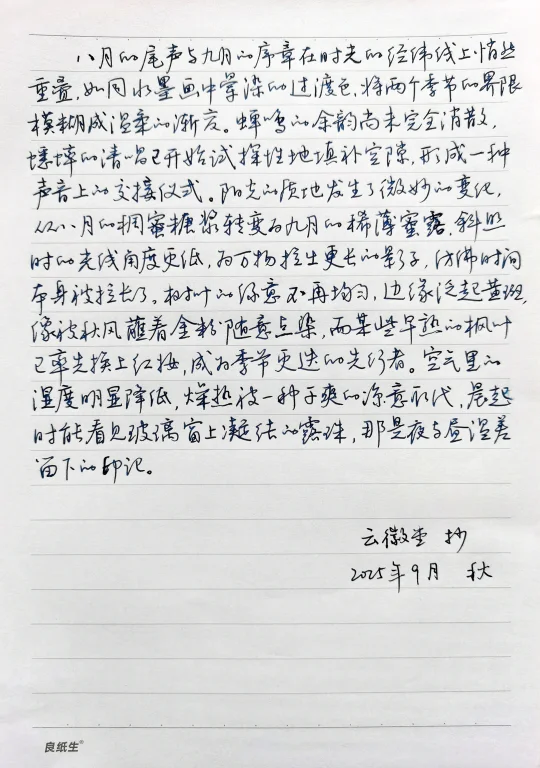 八月的尾声与九月的序章在时光的经纬线上悄然
重叠，如同水墨画中晕染的过渡色，将两个季节的界限
模糊成温柔的渐变。蝉鸣的余韵尚未完全消散，
蟋蟀的清唱已开始试探性地填补空隙，形成一种
声音上的交接仪式。阳光的质地发生了微妙的变化，
从八月的稠蜜糖浆转变为九月的稀薄蜜露，斜照
时的光线角度更低，为万物拉出更长的影子，仿佛时间
本身被拉长了。树叶的绿意不再均匀，边缘泛起黄斑，
像被秋风蘸着金粉随意点染，而某些早熟的枫叶
已率先换上红妆，成为季节更迭的先行者。空气里的
湿度明显降低，燥热被一种干爽的凉意取代，晨起
时能看见玻璃窗上凝结的露珠，那是夜与昼温差
留下的印记。
云徽堂 抄
2025年9月 秋
良纸生®